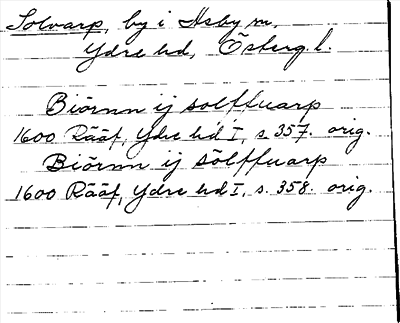 Solvarp, by i Asby sn,
Ydre hd, Österg. l.
Biörnn ij solffuarp
1600 Rääf, Ydre hd I, s. 357. orig.
Biörnn ij sölffuarp
1600 Rääf, Ydre hd I, s. 358. orig.